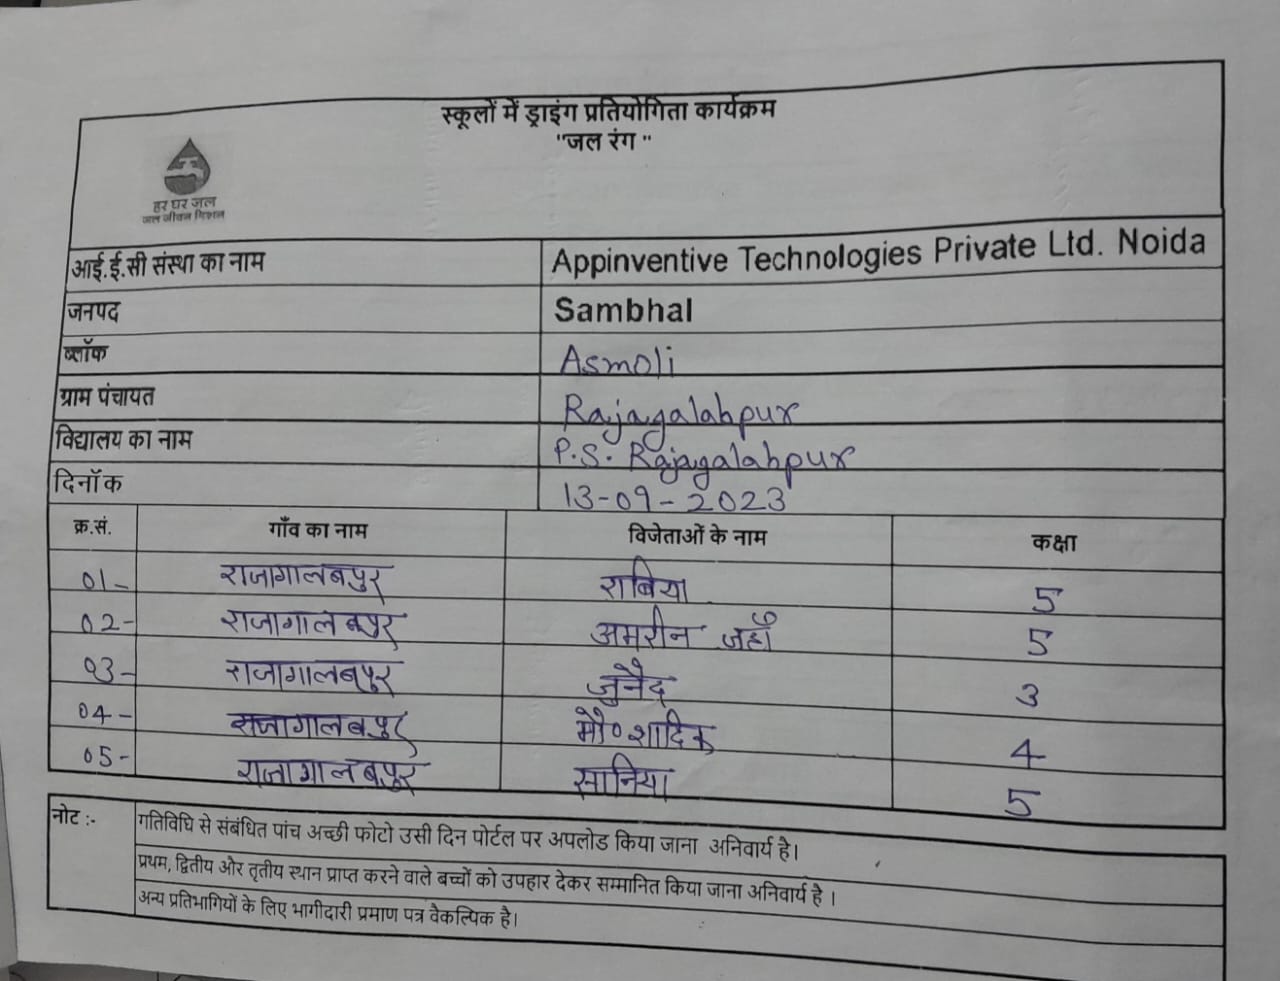 स्कूलों में ड्राइंग प्रतियोगिता कार्यक्रम
"जल रंग "
हर घर जल
जल जीवन मिशन
आई.ई.सी संस्था का नाम Appinventive Technologies Private Ltd. Noida
जनपद Sambhal
ब्लॉक Asmoli
ग्राम पंचायत Rajagalabpur
विद्यालय का नाम P.S. Rajagalabpur
दिनॉक 13-09-2023
क्र.सं. गाँव का नाम विजेताओं के नाम कक्षा
01- राजागालबपुर राबिया 5
02- राजागालबपुर अमरीन जहाँ 5
03- राजागालबपुर जुनैद 3
04- राजागालबपुर मौ० शादिक 4
05- राजागालबपुर सानिया 5
नोट :- गतिविधि से संबंधित पांच अच्छी फोटो उसी दिन पोर्टल पर अपलोड किया जाना अनिवार्य है।
प्रथम, द्वितीय और तृतीय स्थान प्राप्त करने वाले बच्चों को उपहार देकर सम्मानित किया जाना अनिवार्य है ।
अन्य प्रतिभागियों के लिए भागीदारी प्रमाण पत्र वैकल्पिक है।